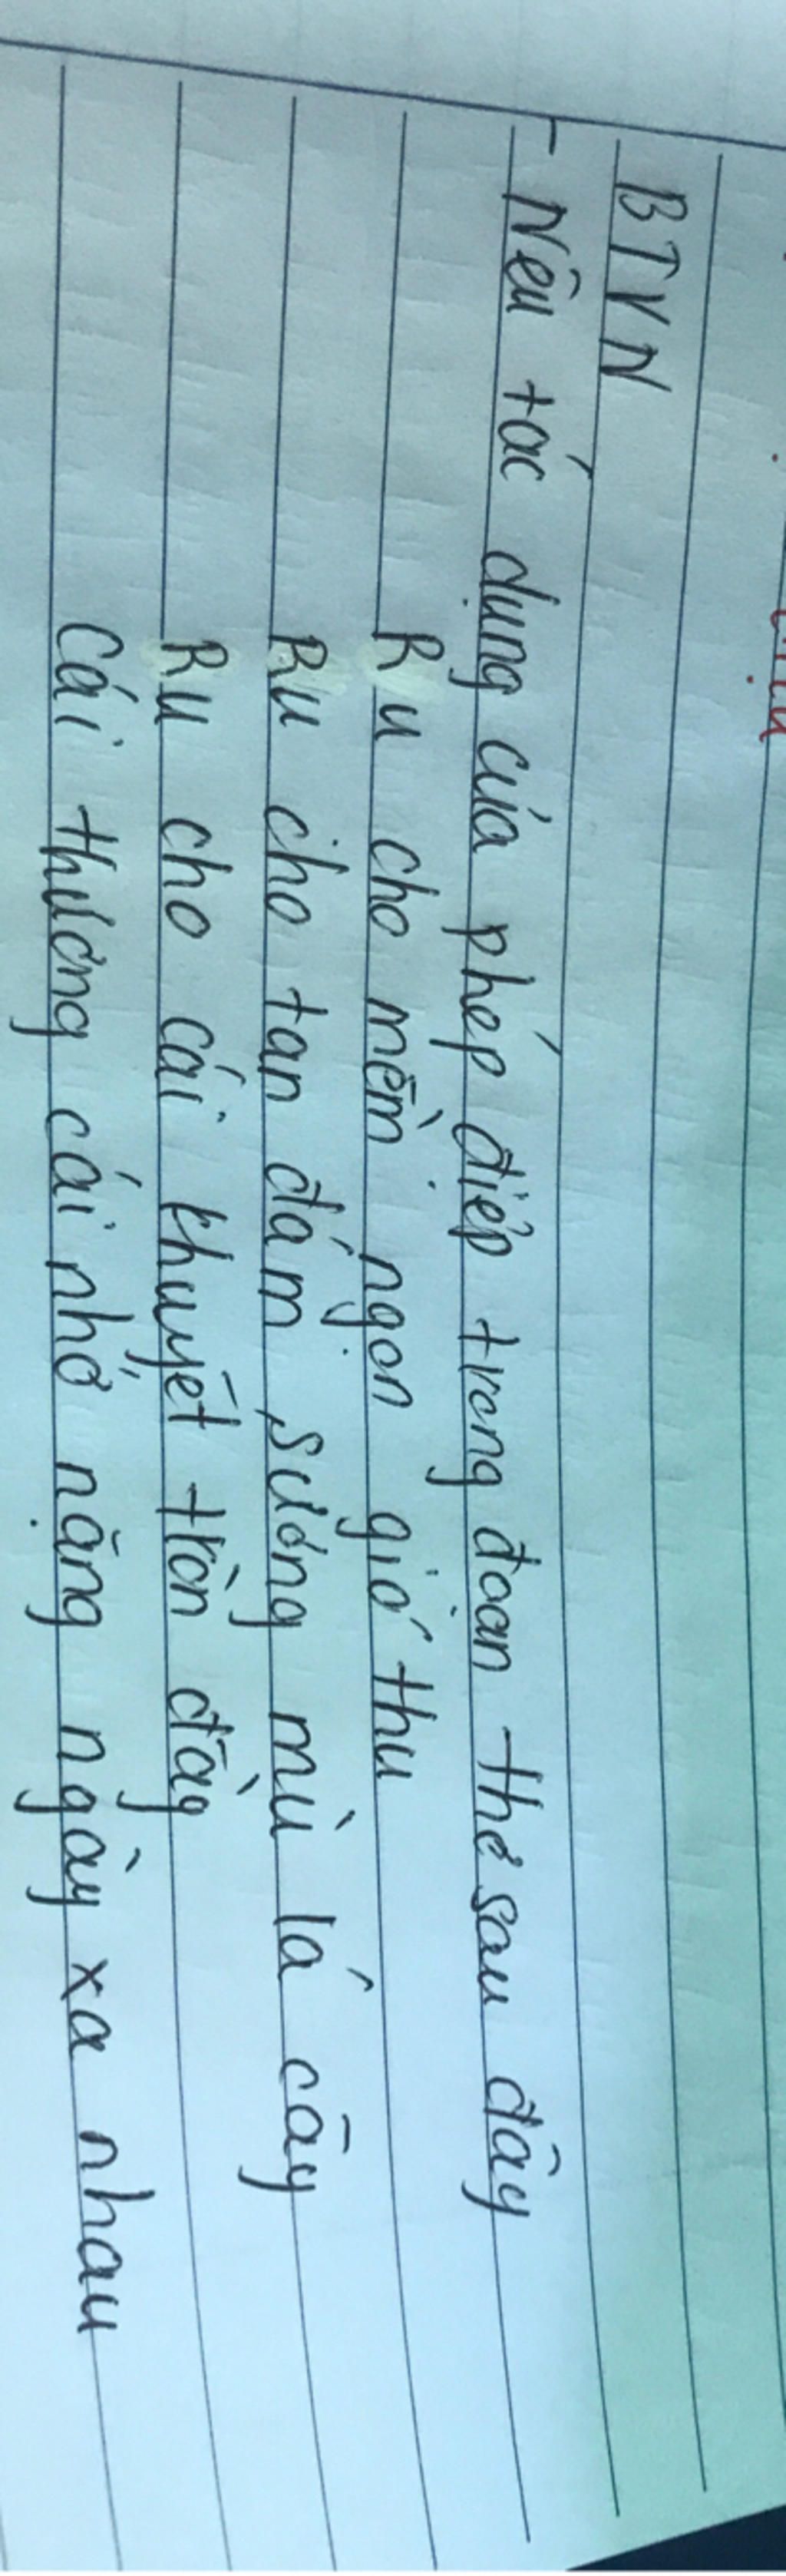 BTVN
- Nêu tác dụng của phép điệp trong đoạn thơ sau đây
Ru cho mềm ngọn gió thu
Ru cho tan đám sương mù lá cây
Ru cho cái khuyết tròn đầy
Cái thương cái nhớ nặng ngày xa nhau